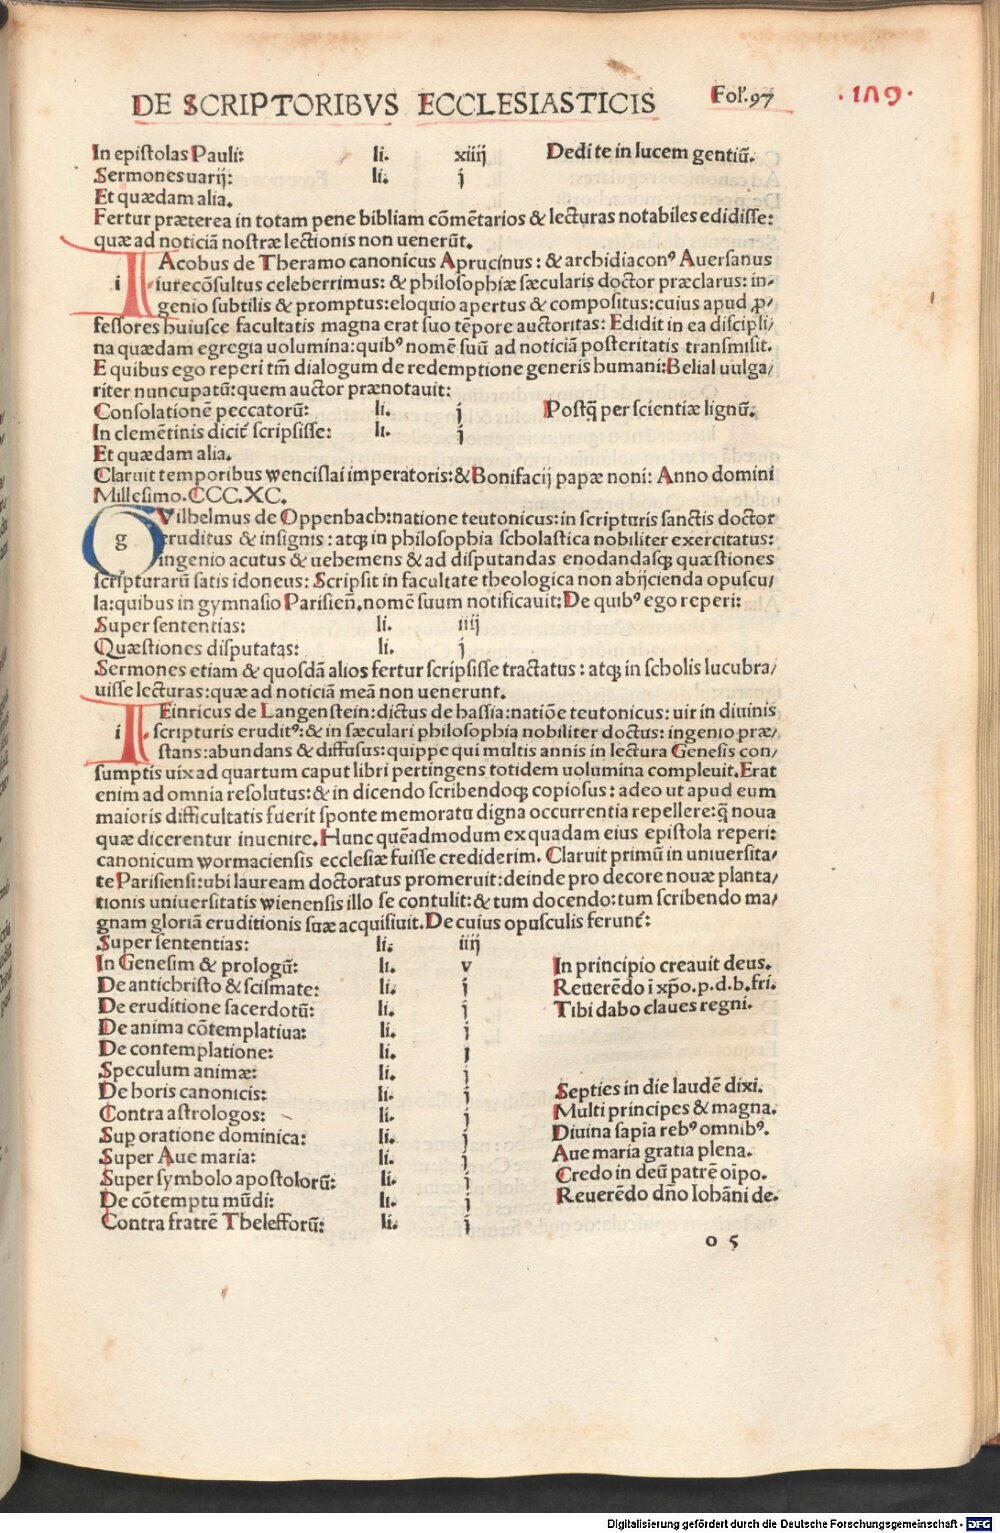 DE SCRIPTORIBVS ECCLESIASTICIS Fol'.97 ·189·
In epistolas Pauli: li. xiiij Dedi te in lucem gentiũ.
Sermones uarij: li. j
Et quædam alia.
Fertur præterea in totam pene bibliam cõmẽtarios & lecturas notabiles edidisse:
quæ ad noticiã nostræ lectionis non uenerũt.
IAcobus de Theramo canonicus Aprucinus: & archidiaconꝰ Auersanus
i iurecõsultus celeberrimus: & philosophiæ sæcularis doctor præclarus: in-
genio subtilis & promptus: eloquio apertus & compositus: cuius apud ꝓ/
fessores huiusce facultatis magna erat suo tẽpore auctoritas: Edidit in ea discipli/
na quædam egregia uolumina: quibꝰ nomẽ suũ ad noticiã posteritatis transmisit.
E quibus ego reperi tm̃ dialogum de redemptione generis humani: Belial uulga/
riter nuncupatũ: quem auctor prænotauit:
Consolationẽ peccatorũ: li. j Postq̃ per scientiæ lignũ.
In clemẽtinis dicit̃ scripsisse: li. j
Et quædam alia.
Claruit temporibus wencislai imperatoris: & Bonifacij papæ noni: Anno domini
Millesimo.CCC.XC.
GVilhelmus de Oppenbach: natione teutonicus: in scripturis sanctis doctor
g eruditus & insignis: atqꝫ in philosophia scholastica nobiliter exercitatus:
ingenio acutus & uehemens & ad disputandas enodandasqꝫ quæstiones
scripturarũ satis idoneus: Scripsit in facultate theologica non abijcienda opuscu/
la: quibus in gymnasio Parisieñ. nomẽ suum notificauit: De quibꝰ ego reperi:
Super sententias: li. iiij
Quæstiones disputatas: li. j
Sermones etiam & quosdã alios fertur scripsisse tractatus: atqꝫ in scholis lucubra/
uisse lecturas: quæ ad noticiã meã non uenerunt.
HEinricus de Langenstein: dictus de hassia: natiõe teutonicus: uir in diuinis
i scripturis eruditꝰ: & in sæculari philosophia nobiliter doctus: ingenio præ/
stans: abundans & diffusus: quippe qui multis annis in lectura Genesis con/
sumptis uix ad quartum caput libri pertingens totidem uolumina compleuit. Erat
enim ad omnia resolutus: & in dicendo scribendoqꝫ copiosus: adeo ut apud eum
maioris difficultatis fuerit sponte memoratu digna occurrentia repellere: q̃ noua
quæ dicerentur inuenire. Hunc quẽadmodum ex quadam eius epistola reperi:
canonicum wormaciensis ecclesiæ fuisse crediderim. Claruit primũ in uniuersita/
te Parisiensi: ubi lauream doctoratus promeruit: deinde pro decore nouæ planta/
tionis uniuersitatis wienensis illo se contulit: & tum docendo: tum scribendo ma/
gnam gloriã eruditionis suæ acquisiuit. De cuius opusculis ferunt̃:
Super sententias: li. iiij
In Genesim & prologũ: li. v In principio creauit deus.
De antichristo & scismate: li. j Reuerẽdo i xp̃o.p.d.b.fri.
De eruditione sacerdotũ: li. j Tibi dabo claues regni.
De anima cõtemplatiua: li. j
De contemplatione: li. j
Speculum animæ: li. j
De horis canonicis: li. j Septies in die laudẽ dixi.
Contra astrologos: li. j Multi principes & magna.
Suꝑ oratione dominica: li. j Diuina sapia rebꝰ omnibꝰ.
Super Aue maria: li. j Aue maria gratia plena.
Super symbolo apostolorũ: li. j Credo in deũ patrẽ oĩpo.
De cõtemptu mũdi: li. j Reuerẽdo dño Iohãni de.
Contra fratrẽ Thelefforũ: li. j
o 5
Digitalisierung gefördert durch die Deutsche Forschungsgemeinschaft - DFG